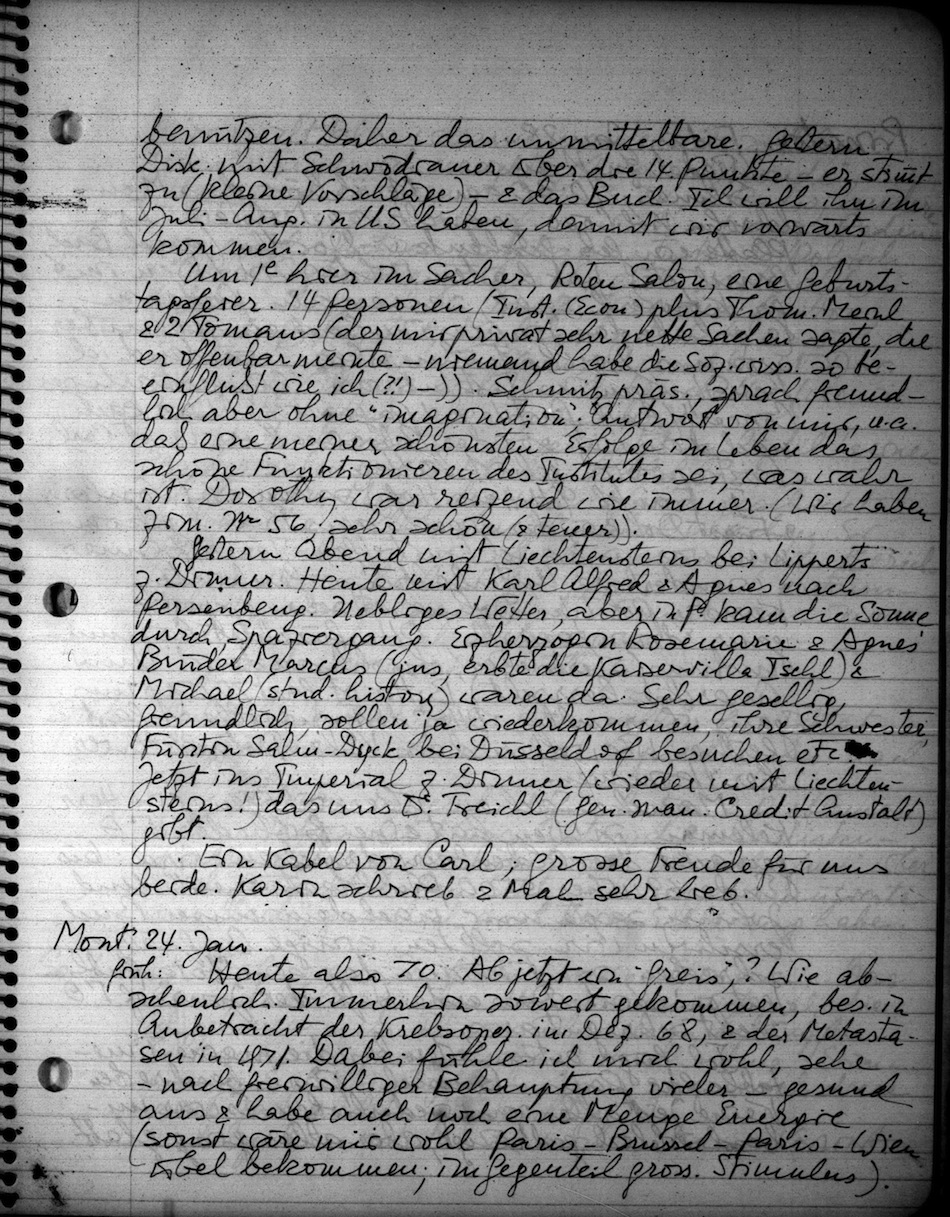 benützen. Daher das unmittelbare. Gestern
Disk. mit Schwödiauer über die 14 Punkte – er stimmt
zu (kleine Vorschläge) – & das Buch. Ich will ihn im
Juli – Aug. in US haben, damit wir vorwärts
kommen.
Um 1h hier im Sacher, Roten Salon, eine Geburts-
tagsfeier. 14 Personen (Inst. (Econ) plus Thom. Meinl
& 2 Tomans (der mir privat sehr nette Sachen sagte, die
er offenbar meinte – niemand habe die Soz. wiss. so be-
einflusst wie ich (?!) –)). Schmitz präs., sprach freund-
lich aber ohne "imagination". Antwort von mir, u.a.
daß eine meiner schönsten Erfolge im Leben das
schöne Funktionieren des Institutes sei, was wahr
ist. Dorothy war reizend wie immer. (Wir haben
Zim. Nr 56, sehr schön (& teuer)).
Gestern Abend mit Liechtensteins bei Lipperts
z. Dinner. Heute mit Karl Alfred & Agnes nach
Persenbeug. Nebliges Wetter, aber in P. kam die Sonne
durch, Spaziergang. Erzherzogin Rosemarie & Agnes'
Brüder Marcus (jus, erbte die Kaiservilla Ischl) &
Michael (stud. history) waren da. Sehr gesellig,
freundlich, sollen ja wiederkommen, ihre Schwester,
Fürstin Salm-Dyck bei Düsseldorf besuchen etc.
Jetzt ins Imperial z. Dinner (wieder mit Liechten-
steins!) das uns Dr. Treichl (Gen. Man. Credit Anstalt)
gibt.
Ein Kabel von Carl; grosse Freude für uns
beide. Karin schrieb 2 Mal sehr lieb.
Mont. 24. Jan.
früh: Heute also 70. Ab jetzt ein "Greis"? Wie ab-
scheulich. Immerhin soweit gekommen, bes. in
Anbetracht der Krebsoper. im Dez. 68, & der Metasta-
sen in 1971. Dabei fühle ich mich wohl, sehe
– nach freiwilliger Behauptung vieler – gesund
aus & habe auch noch eine Menge Energie
(sonst wäre mir wohl Paris – Brüssel – Paris – Wien
übel bekommen; im Gegenteil gross. Stimulus).